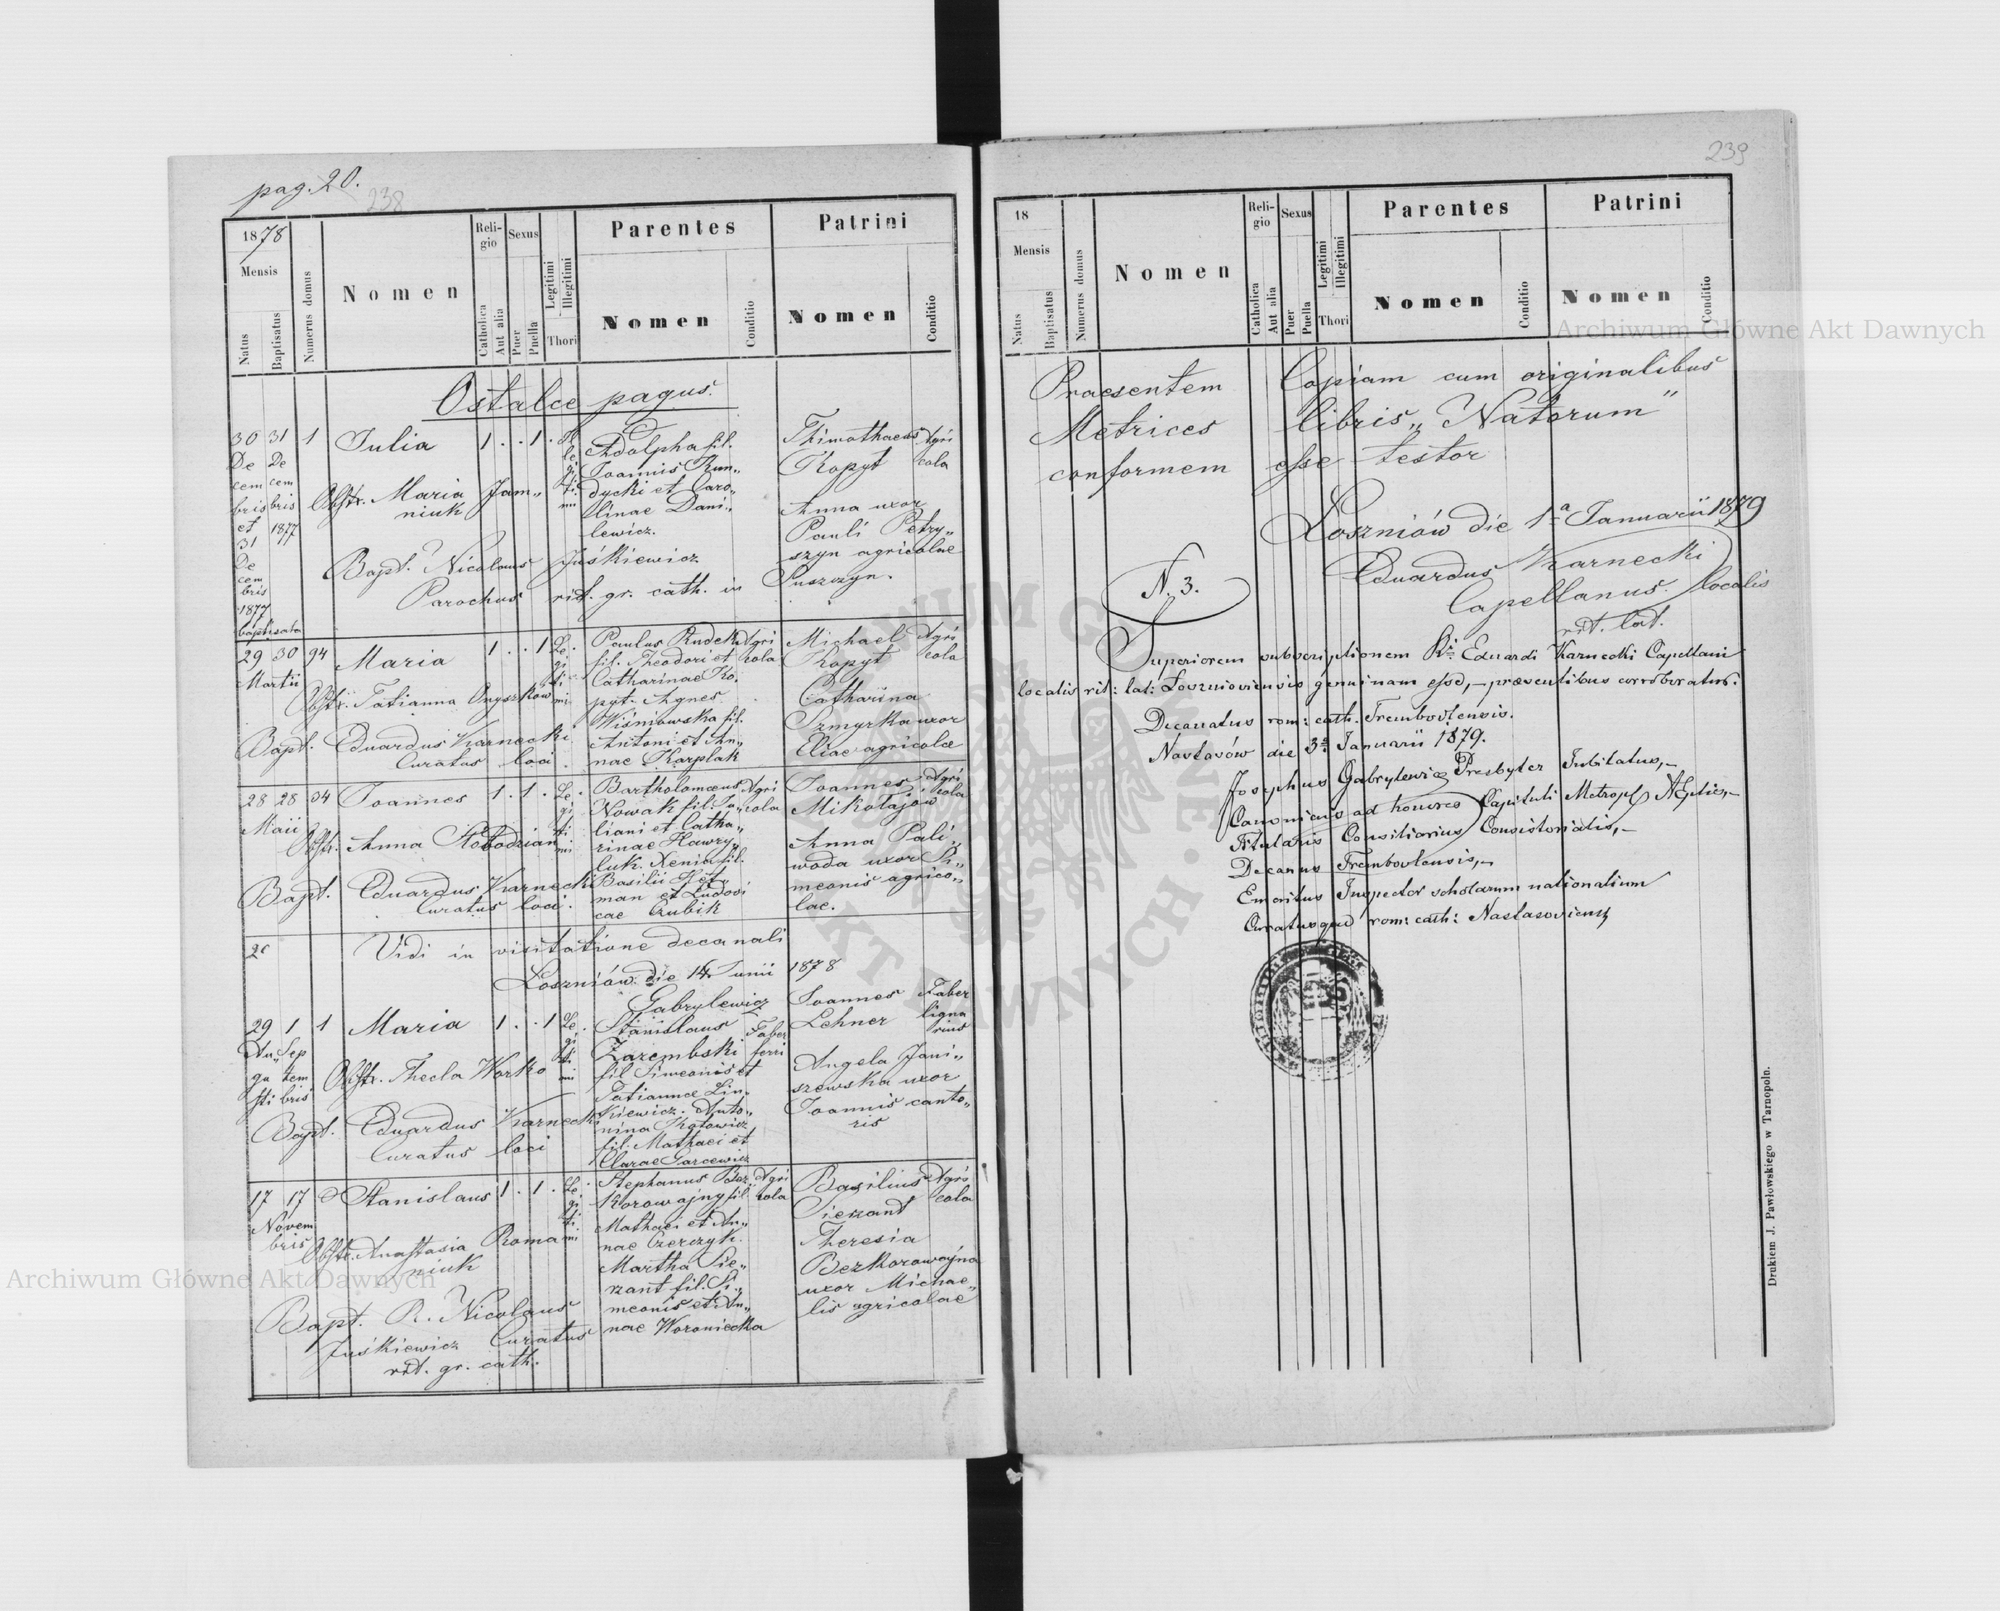 pag. 20.
238
1878
Mensis
Natus
Baptisatus
Numerus domus
Nomen
Religio
Catholica
Aut alia
Sexus
Puer
Puella
Legitimi
Illegitimi
Thori
Parentes
Nomen
Conditio
Patrini
Nomen
Conditio
Ostalce pagus.
30 31 1 Julia 1 . . 1 .
De De
cem cem
bris bris
et 1877
31
De
cem
bris
1877
baptisata
Obstr. Maria Jam„
niuk
Bapt. Nicolaus Juśkiewicz
Parochus rit. gr. cath. in Suszczyn.
Adolpha fil.
Joannis Run„
dycki et Caro„
linae Dani„
lewicz.
Thimothaeus Agri
Kopyt cola
Anna uxor
Pauli Petry„
szyn agricolae
29 30 94 Maria 1 . . 1
Martii
Obstr. Tatianna Onyszków
Bapt. Eduardus Karnecki
Curatus loci.
Legitimi
Paulus Rudek Agri
fil. Theodori et cola
Catharinae Ko„
pyt. Agnes
Wiśniowska fil.
Antoni et An„
nae Karplak
Michael Agri
Kopyt cola
Catharina
Szmyrka uxor
Eliae agricolae
28 28 34 Joannes 1 . 1 .
Maii
Obstr. Anna Słobodzian
Bapt. Eduardus Karnecki
Curatus loci.
Legitimi
Bartholomeus Agri
Nowak fil. Ju„ cola
liani et Catha„
rinae Hawry„
luk. Xenia fil.
Basilii Het„
man et Ludovi
cae Kubik
Joannes Agri
Mikołajów cola
Anna Pali„
woda uxor Si„
meonis agrico„
lae.
Vidi in visitatione decanali
Loszniów die 14 Junii 1878
Gabrylewicz
29 1 1 Maria 1 . . 1
Au„ Sep
gu tem
sti bris
Obstr. Thecla Worko
Bapt. Eduardus Karnecki
Curatus loci
Legitimi
Stanislaus Faber
Zarembski ferri
fil Simeonis et
Tatiannae Lin„
kiewicz. Anto„
nina Kotowicz
fil. Mathaei et
Clarae Garcewicz
Joannes Faber
Lehner ligna
rius
Angela Jani„
szewska uxor
Joannis canto„
ris
17 17 Stanislaus 1 . 1 .
Novem
bris
Obstr. Anastasia Roma
niuk
Bapt. R. Nicolaus
Juśkiewicz Curatus
rit. gr. cath.
Legitimi
Stephanus Bez„ Agri
korowajny fil. cola
Mathaei et An„
nae Czerczyk.
Martha Sie„
rzant fil. Si„
meonis et An„
nae Woroniecka
Basilius Agri
Sierzant cola
Theresia
Bezkorowajna
uxor Michae„
lis agricolae
239
18
Mensis
Natus
Baptisatus
Numerus domus
Nomen
Religio
Catholica
Aut alia
Sexus
Puer
Puella
Legitimi
Illegitimi
Thori
Parentes
Nomen
Conditio
Patrini
Nomen
Conditio
Praesentem Copiam cum originalibus
Metrices libris „Natorum”
conformem esse testor
Loszniów die 1a Januarii 1879
Eduardus Karnecki
Capellanus localis
rit. lat.
N. 3.
Superiorem subscriptionem Rdi Eduardi Karnecki Capellani
localis rit: lat: Losznioviensis genuinam esse, – praesentibus corroboratur.
Decanatus rom: cath. Trembovlensis.
Nastasów die 3a Januarii 1879.
Josephus Gabrylewicz Presbyter Jubilatus, –
Canonicus ad honores Capituli Metropl
Titularis Consiliarius Consistorialis, –
Decanus Trembovlensis, –
Emeritus Inspector scholarum nationalium
Curatusque rom: cath: Nastasoviensis
Drukiem J. Pawłowskiego w Tarnopolu.
Archiwum Główne Akt Dawnych
Archiwum Główne Akt Dawnych